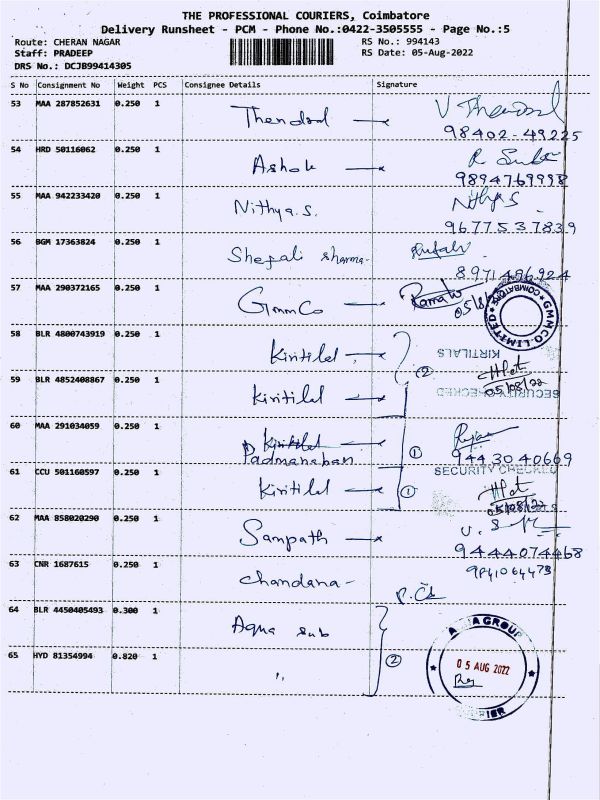 THE PROFESSIONAL COURIERS, Coimbatore
Delivery Runsheet - PCM - Phone No.:0422-3505555 - Page No.:5
Route: CHERAN NAGAR RS No.: 994143
Staff: PRADEEP RS Date: 05-Aug-2022
DRS No.: DCJB99414305
S No Consignment No Weight PCS Consignee Details Signature
53 MAA 287852631 0.250 1
98402-49225
54 HRD 50116062 0.250 1 Ashok
9894769998
55 MAA 942233420 0.250 1 Nithya.S. Nithya S
9677537839
56 BGM 17363824 0.250 1 Shefali sharma
8971496924
57 MAA 290372165 0.250 1 GmmCo
GMMCO LIMITED COIMBATORE
58 BLR 4800743919 0.250 1 Kiritilal
KIRTILALS
(2)
59 BLR 4852408867 0.250 1 Kiritilal
SECURITY CHECKED
05/08/22
60 MAA 291034059 0.250 1 Kiritilal
Padmanaban ① 9443040669
61 CCU 501160597 0.250 1 Kiritilal ①
SECURITY CHECKED
05/08/22
62 MAA 858020290 0.250 1 Sampath
9444074468
63 CNR 1687615 0.250 1 Chandana
64 BLR 4450405493 0.300 1 Aqua sub
②
65 HYD 81354994 0.820 1 "
05 AUG 2022